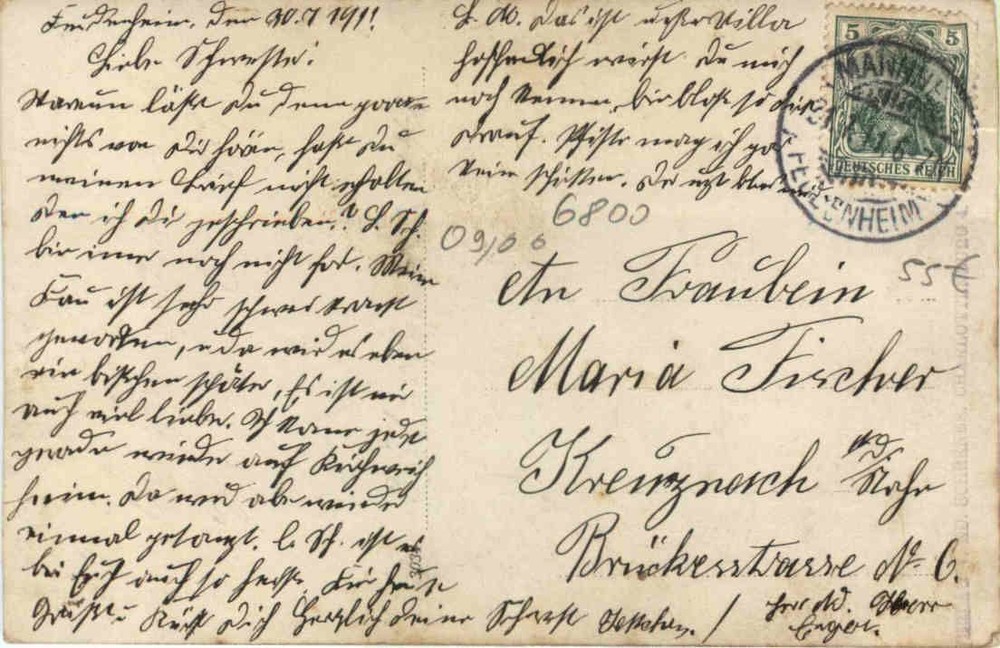 Feudenheim, den 30.7 1911
Liebe Schwester!
Warum läßt du denn gar
nichts von dir hören, hast du
meinen Brief nicht erhalten
den ich dir geschrieben? L. Sch.
bin immer noch nicht fort. Meine
Frau ist sehr schwer krank
geworden, u da wird es eben
ein bißchen später, Es ist mir
auch viel lieber. Ich kann jetzt
grade wieder auf
heim. Da wird aber wieder
einmal getanzt. L. Sch. ist es
bei Euch auch so heiß. Für heute
Grüßt u Küßt Dich herzlich deine Schwest
L. M. Das ist unsere Villa
hoffentlich wirst du mich
noch kennen, bin bloß so
drauf. mag ich gar
kein schicken.
5 5
DEUTSCHES REICH
MANNH
FEUDENHEIM
6800
09/00
55
An Fräulein
Maria Fischer
Kreuznach a/d.
Nahe
Brückesstrasse No 6.